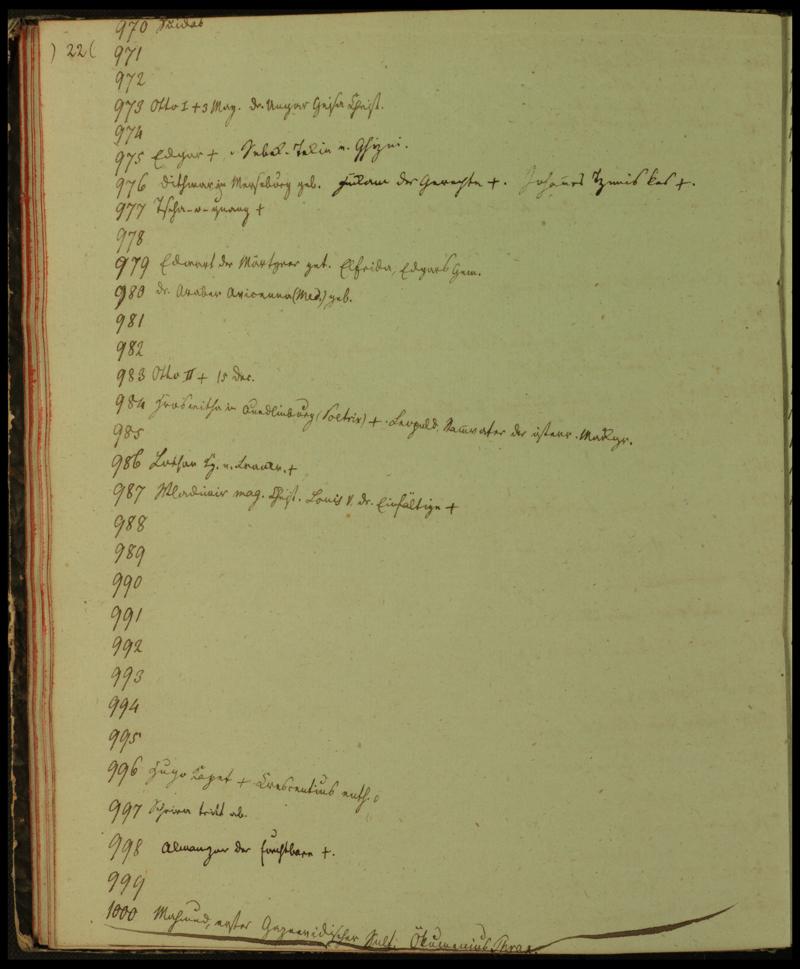 970 Suidas
) 22 (
971
972
973 Otto I + 3 May. der Ungar Geisa Christ.
974
975 Edgar + . Sebek-Tekin v. Ghizni.
976 Dithmar in Merseburg geb. der Gerechte +. Johannes Tzimiskes +.
977 +
978
979 Edward der Märtyrer get. Elfrida, Edgars Gem.
980 der Araber Avicenna (Med.) geb.
981
982
983 Otto II + 15 Dec.
984 Hroswitha in Quedlinburg (Poetrix) + . Leopold, Stammvater der österr. Markgr.
985
986 Lothar v. +
987 Wladimir mag. Christ. Louis V. der Einfältige +
988
989
990
991
992
993
994
995
996 Hugo Kapet + Crescentius enth.
997 tritt ab.
998 Almanzor der furchtbare +.
999
1000 Mahmud, erster Gaznevidischer Sult. Ökumenius